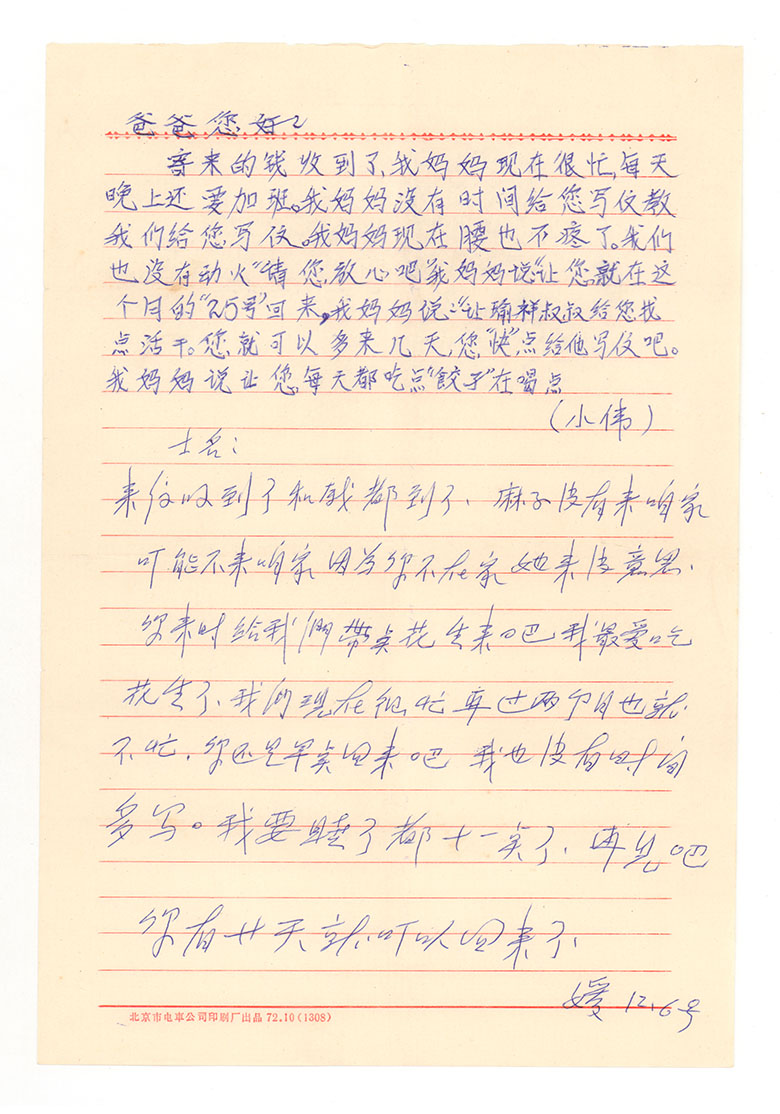 爸爸您好
寄来的钱收到了,我妈妈现在很忙,每天
晚上还要加班。我妈妈没有时间给您写仪教
我们给您写仪。我妈妈现在腰也不疼了。我们
也没有动火“请您放心吧”我妈妈说“让您就在这
个月的“25号”回来,我妈妈说:“让瑜祥叔叔给您找
点活干。您就可以多来几天,您“快”点给他写仪吧。
我妈妈说让您,每天都吃点“餃子”在喝点
(小伟)
士名:
来信收到了和钱都到了、麻子没有来咱家
可能不来咱家因为你不在家她来没意思.
你来时给我們带点花生来吧我最爱吃
花生了、我们现在很忙再过两个月也就
不忙.你还是早点回来吧 我也没有时间
多写。我要睡了都十一点了、再见吧
你有廿天就可以回来了、
媛 12.6号
北京市电車公司印刷厂出品 72.10(1308)